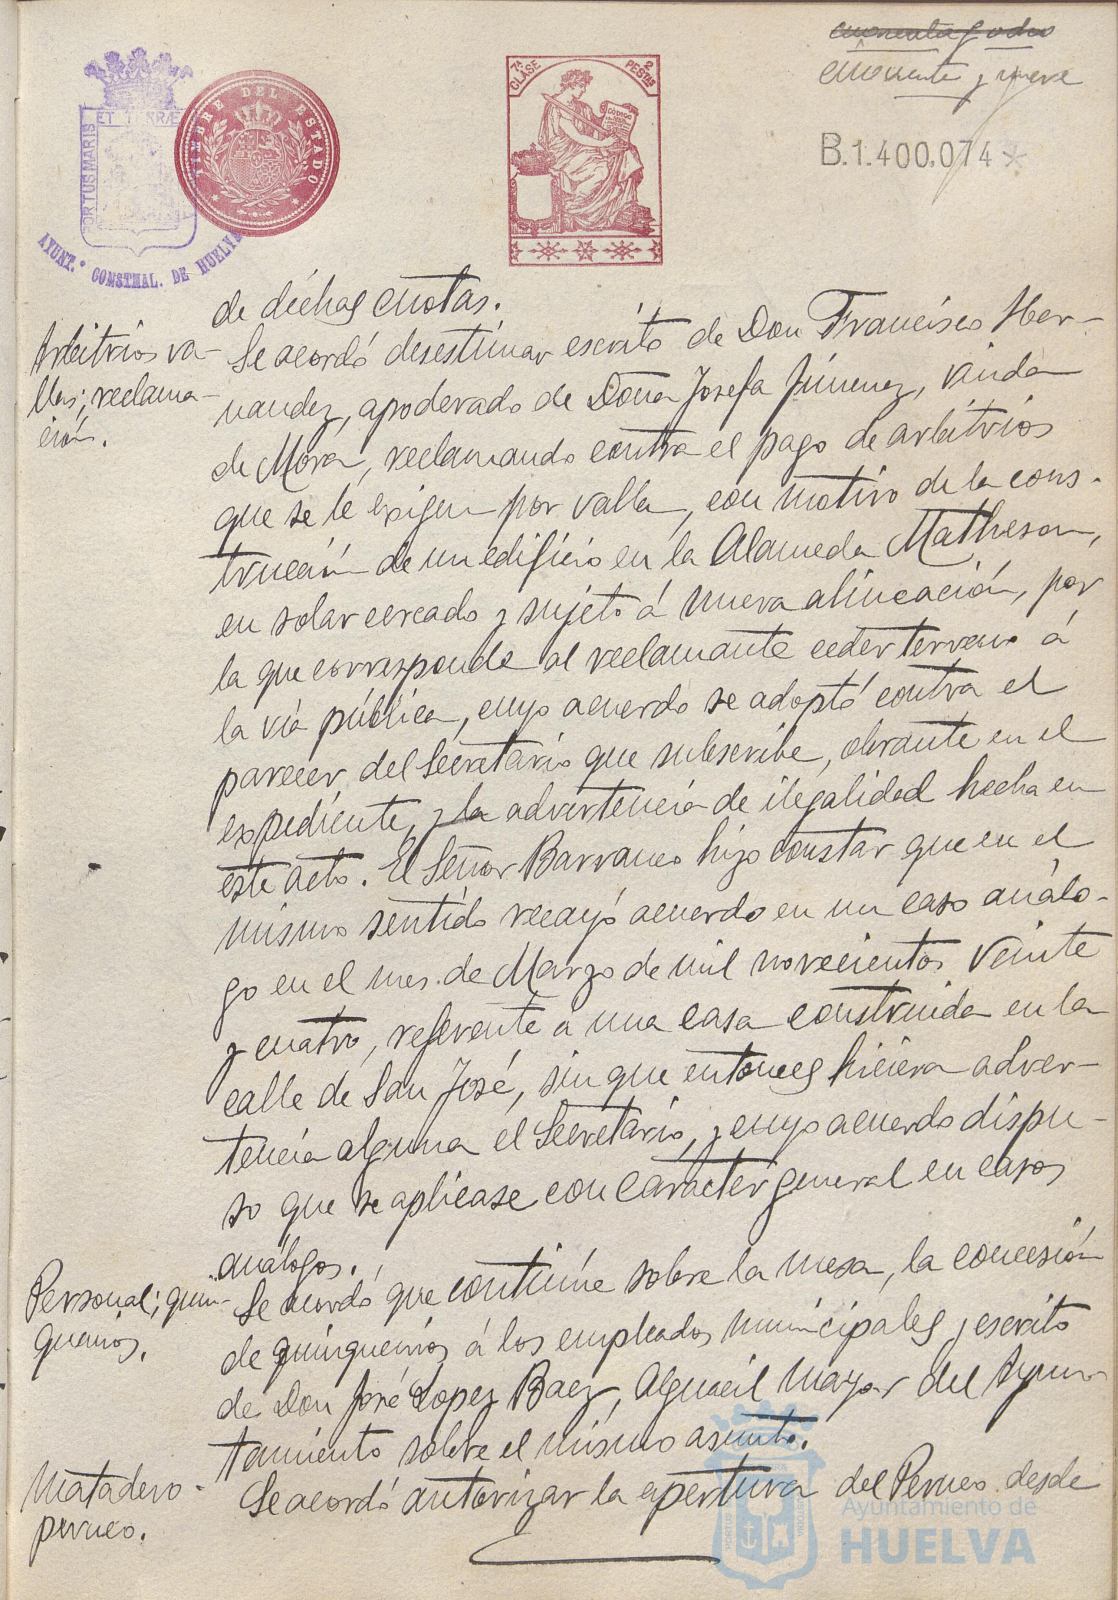 cuarenta y ocho
cincuenta y nueve
7ª CLASE
2 PESTAS
CÓDIGO
B.1.400.074*
TIMBRE DEL ESTADO
PORTUS MARIS ET TERRÆ
AYUNT.º CONSTNAL. DE HUELVA
de dichas cuotas.
Arbitrios va-
llas; reclama-
ción.
Se acordó desestimar escrito de Don Francisco Her-
nandez, apoderado de Doña Josefa Jimenez, viuda
de Mora, reclamando contra el pago de arbitrios
que se le exigen por valla, con motivo de la cons-
trucción de un edificio en la Alameda Matheson,
en solar cercado y sujeto á nueva alineación, por
la que corresponde al reclamante ceder terreno á
la via pública, cuyo acuerdo se adoptó contra el
parecer del Secretario que subscribe, obrante en el
expediente, y la advertencia de ilegalidad hecha en
este acto. El Señor Barranco hizo constar que en el
mismo sentido recayó acuerdo en un caso análo-
go en el mes de Marzo de mil novecientos veinte
y cuatro, referente a una casa construida en la
calle de San José, sin que entonces hiciera adver-
tencia alguna el Secretario, y cuyo acuerdo dispu-
so que se aplicase con caracter general en casos
análogos.
Personal; quin-
quenios.
Se acordó que continúe sobre la mesa, la concesión
de quinquenios á los empleados municipales y escrito
de Don José Lopez Baez, Alguacil Mayor del Ayun-
tamiento sobre el mismo asunto.
Matadero-
perneo.
Se acordó autorizar la apertura del Perneo desde
Ayuntamiento de
HUELVA